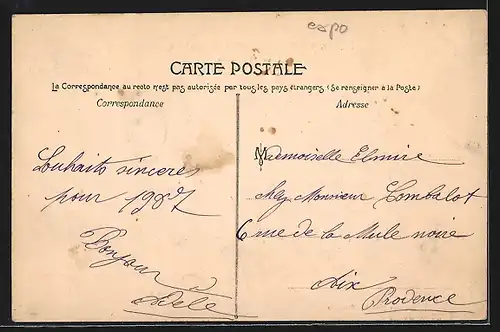 expo
CARTE POSTALE
La Correspondance au recto n'est pas autorisée par tous les pays étrangers (Se renseigner à la Poste)
Correspondance
Adresse
Souhaits sincères
pour 1907
Bonjour à
Adèle
Mademoiselle Elmire
chez Monsieur Combalot
6 rue de la Mule noire
Aix
Provence